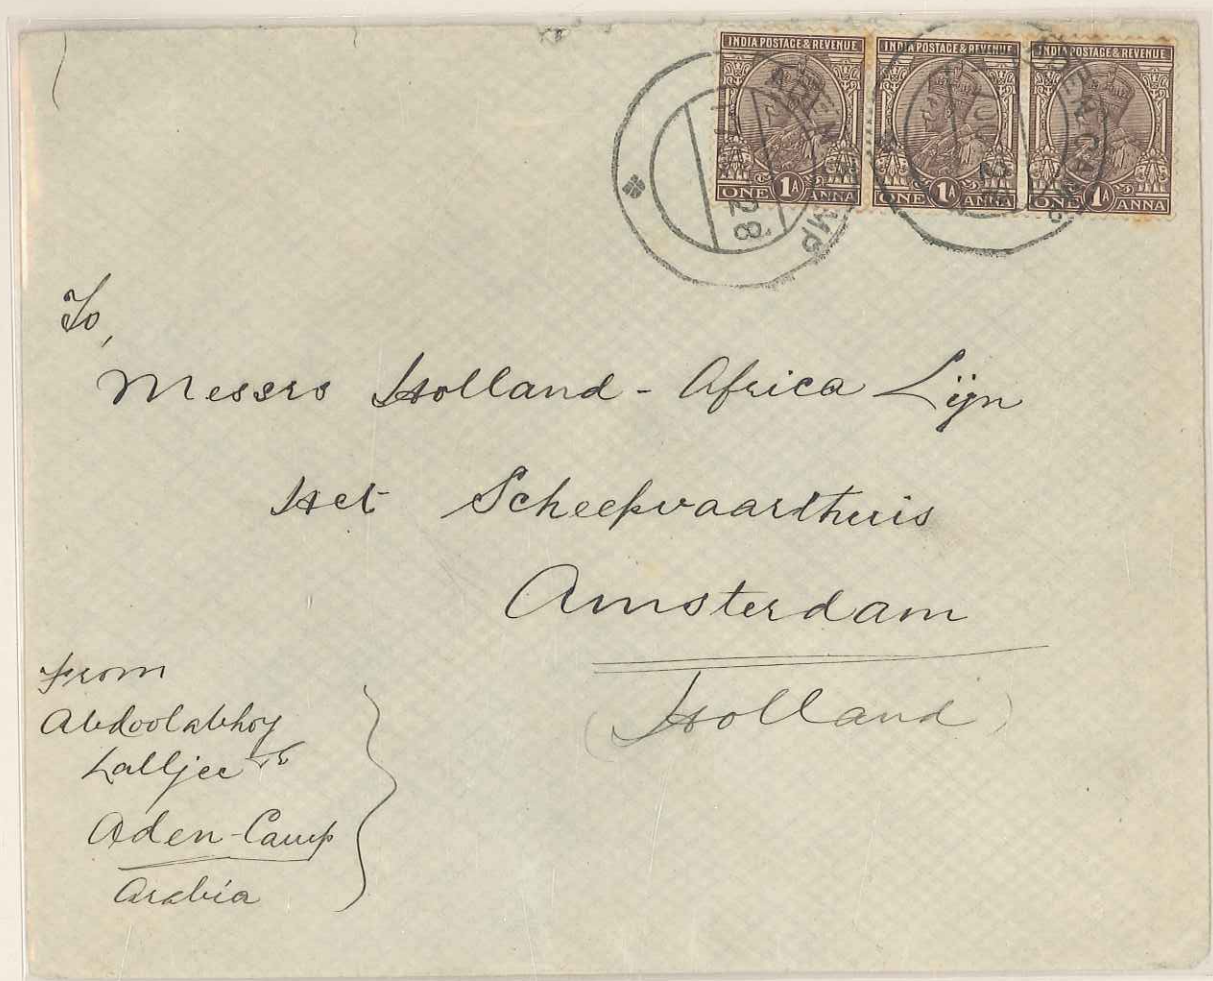 INDIA POSTAGE & REVENUE INDIA POSTAGE & REVENUE INDIA POSTAGE & REVENUE
ONE 1A ANNA ONE 1A ANNA ONE 1A ANNA
ADEN CAMP
28
To,
Messrs Holland-Africa Lijn
Het Scheepvaardthuis
Amsterdam
(Holland)
From
Abdoolabhoy
Lalljee
Aden-Camp
Arabia